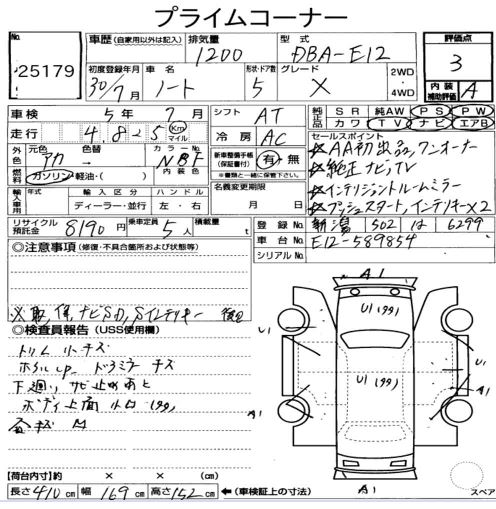 プライムコーナー
No. 25179
車歴 (自家用以外は記入) 排気量 1200 型式 DBA-E12 評価点 3
初度登録年月 30/7月 車名 ノート 形状・ドア数 5 グレード X 2WD 4WD 内装補助評価 A
車検 5年7月 シフト AT 純正品 SR 純AW PS PW
カワ TV ナビ エアB
走行 4.8 5 Km マイル 冷房 AC セールスポイント
外色 元色 アカ 色替→ カラーNo. NBF 内装色
★AA初出品,ワンオーナー
燃料 ガソリン・軽油・( ) 新車整備手帳(保証書付) 有・無 ※書類と一緒に保管して下さい。
★純正ナビ,TV
★インテリジェントルームミラー
★プッシュスタート,インテリキーX2
輸入車用 年式 輸入区分 ハンドル 名義変更期限
ディーラー・並行 左・右 月 日
リサイクル預託金 8190円 乗車定員 5人 積載量 t
登録No. 新潟 502 は 6299
車台No. E12-589854
シリアルNo.
◎注意事項 (修復・不具合箇所および状態等)
※取,保,ナビSD,Sインテリキー 後日
◎検査員報告 (USS使用欄)
トリム小キズ
ホイルcap. ドアミラーキズ
下廻り サビ止めあと
ボディ上面
A1
U1 (99)
U1
U1
U1 (99)
A1
A1
A1
スペア
【荷台内寸】約 × × (cm)
長さ 410 cm 幅 169 cm 高さ 152 cm ←(車検証上の寸法)